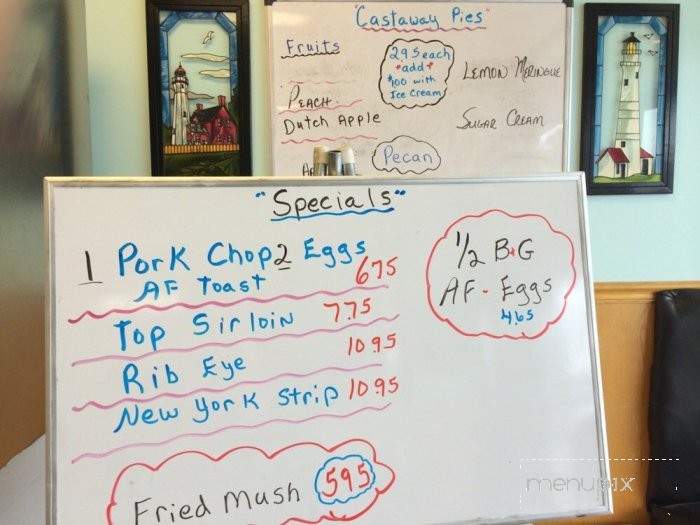 "Castaway Pies"
Fruits
2.95 each
add
$1.00 with
Ice Cream
Lemon Meringue
Peach
Dutch Apple
Sugar Cream
Pecan
"Specials"
1 Pork Chop 2 Eggs
AF Toast 675
Top Sirloin 7.75
Rib Eye 10.95
New York Strip 10.95
Fried Mush 595
1/2 B+G
AF - Eggs
4.65
menupix